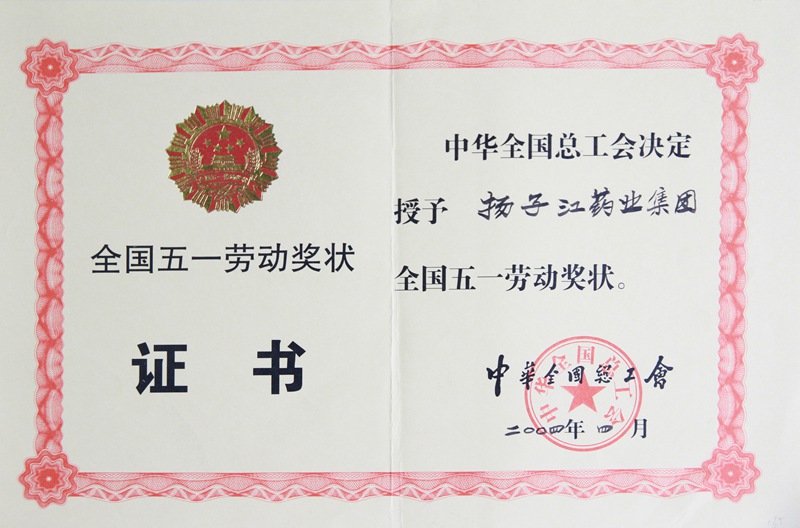 全国五一劳动奖状
证书
中华全国总工会决定
授予 扬子江药业集团
全国五一劳动奖状。
中華全國總工會
中华全国总工会
二〇〇四年四月